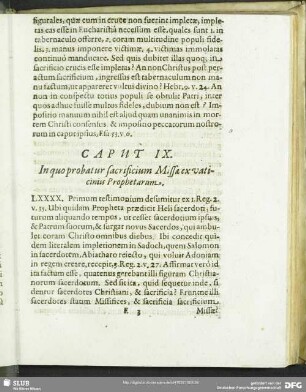 figurales, quæ cum in cruce non fuerint impletæ, imple-
tas eas esse in Eucharistia necessum esse, quales sunt 1. in
tabernaculo offerre, 2. coram multitudine populi fide-
lis, 3. manus imponere victimæ, 4. victimas immolatas
continuò manducare. Sed quis dubitet illas quoq; in
sacrificio crucis esse impletas? An non Christus post per-
actum sacrificium, ingressus est tabernaculum non ma-
nu factum, ut appareret vultui divino? Hebr. 9. v. 24. An
non in conspectu totius populi se obtulit Patri, inter
quos adhuc fuisse multos fideles, dubium non est? Im-
positio manuum nihil est aliud quam unanimis in mor-
tem Christi consensus & impositio peccatorum nostro-
rum in caput ipsius, Esa 53. v. 6.
CAPUT IX.
In quo probatur sacrificium Missæ ex vati-
cinius Prophetarum.
LXXXX. Primum testimonium desumitur ex 1. Reg. 2.
v. 35. Ubi quidam Propheta prædicit Heli sacerdoti, fu-
turum aliquando tempus, ut cesset sacerdotium ipsius,
& Patrum suorum, & surgat novus Sacerdos, qui ambu-
let coram Christo omnibus diebus. Ubi concedit qui-
dem literalem impletionem in Sadoch, quem Salomon
in sacerdotem, Abiatharo reiecto, qui voluit Adoniam
in regem creare, recepit, 3. Reg. 2. v. 27. Affirmat verò id
ita factum esse, quatenus gerebant illi figuram Christia-
norum sacerdotum. Sed scitè, quid sequetur inde, si
dentur sacerdotes Christiani, & sacrificia? Erunt ne illi
sacerdotes statim Missifices, & sacrificia sacrificium
F 3
Missæ?
SLUB
Wir führen Wissen.
DFG